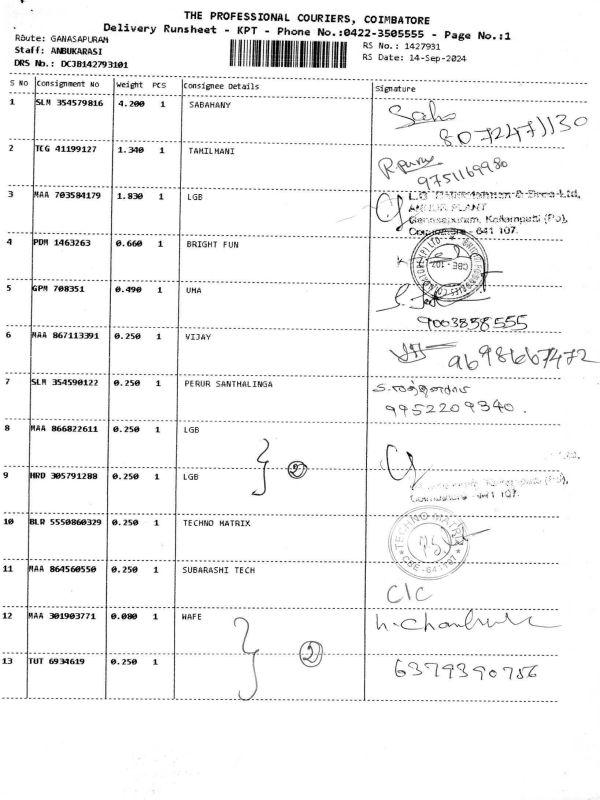 THE PROFESSIONAL COURIERS, COIMBATORE
Delivery Runsheet - KPT - Phone No.:0422-3505555 - Page No.:1
Route: GANASAPURAM
Staff: ANBUKARASI
DRS No.: DCJB142793101
RS No.: 1427931
RS Date: 14-Sep-2024
S NO Consignment No Weight PCS Consignee Details Signature
1 SLM 354579816 4.200 1 SABAHANY
8072471130
2 TCG 41199127 1.340 1 TAMILMANI
9751169980
3 MAA 703584179 1.830 1 LGB
Ganesapuram, Kallampatti (Po),
Coimbatore - 641 107.
4 PDM 1463263 0.660 1 BRIGHT FUN
CBE - 107
5 GPM 708351 0.490 1 UMA
9003858555
6 MAA 867113391 0.250 1 VIJAY
9698667472
7 SLM 354590122 0.250 1 PERUR SANTHALINGA
9952209340.
8 MAA 866822611 0.250 1 LGB
9 HRD 305791288 0.250 1 LGB
2
Coimbatore - 641 107.
10 BLR 5550860329 0.250 1 TECHNO MATRIX
TECHNO MATRIX
CBE-641107
11 MAA 864560550 0.250 1 SUBARASHI TECH
C/C
12 MAA 301903771 0.080 1 WAFE
2
13 TUT 6934619 0.250 1
6379390756